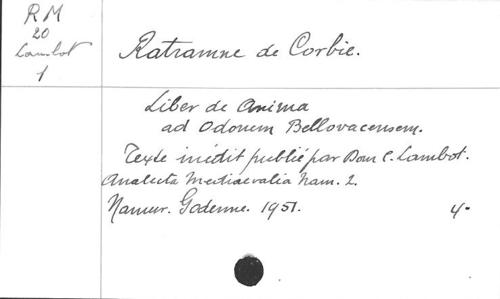 RM
20
Lambot
1
Ratramne de Corbie.
Liber de Anima
ad Odonem Bellovacensem.
Texte inédit publié par Dom C. Lambot.
Analecta Mediaevalia Nam. 2.
Namur. Godenne. 1951. 4-